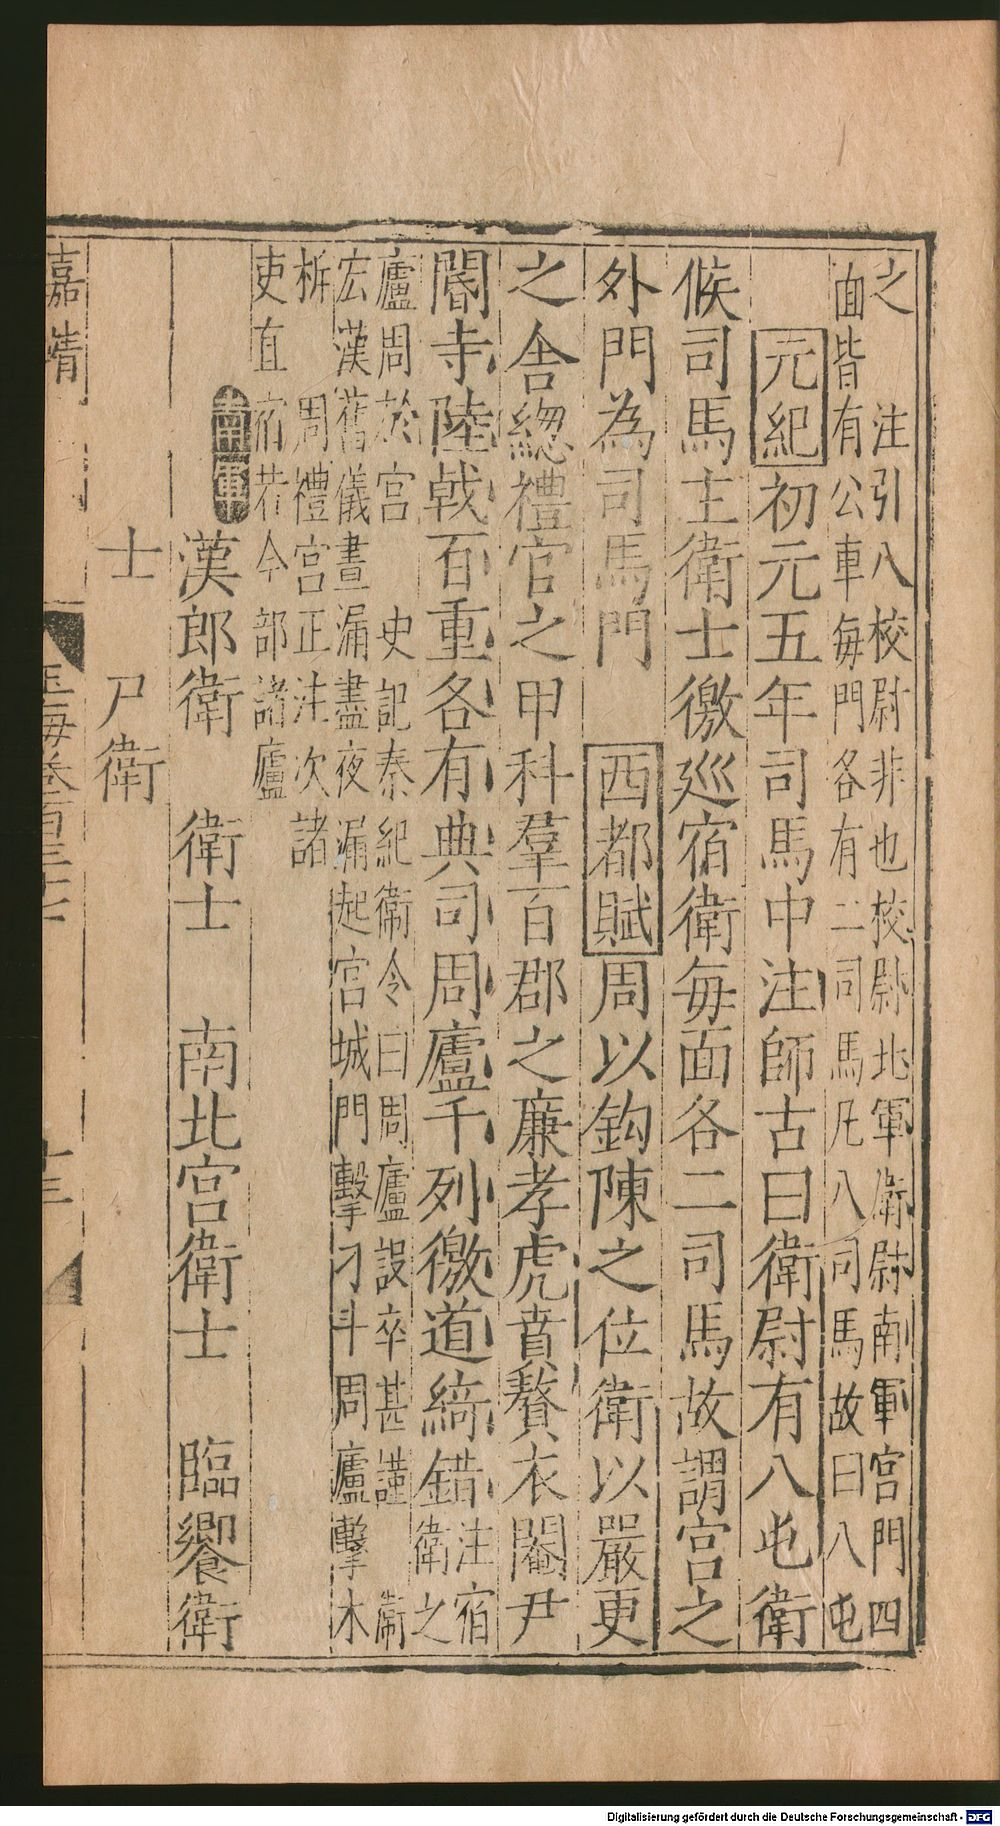 之　注引八校尉非也校尉北軍衛尉南軍宮門四
面皆有公車每門各有二司馬凡八司馬故曰八屯
元紀初元五年司馬中注師古曰衛尉有八屯衛
候司馬主衛士徼廵宿衛每面各二司馬故謂宮之
外門為司馬門　西都賦周以鈎陳之位衛以嚴更
之舍緫禮官之甲科羣百郡之廉孝虎賁贅衣閹尹
閽寺陛戟百重各有典司周廬千列徼道綺錯
注宿
衛之
廬周於宮　史記秦紀衛令曰周廬設卒甚謹　衛
宏漢舊儀晝漏盡夜漏起宮城門擊刁斗周廬擊木
柝　周禮宮正注次諸
吏直宿若今部諸廬
南軍
漢郎衛　衛士　南北宮衛士　臨饗衛
士　尸衛
嘉靖
玉海卷百三十七
十三
Digitalisierung gefördert durch die Deutsche Forschungsgemeinschaft - DFG